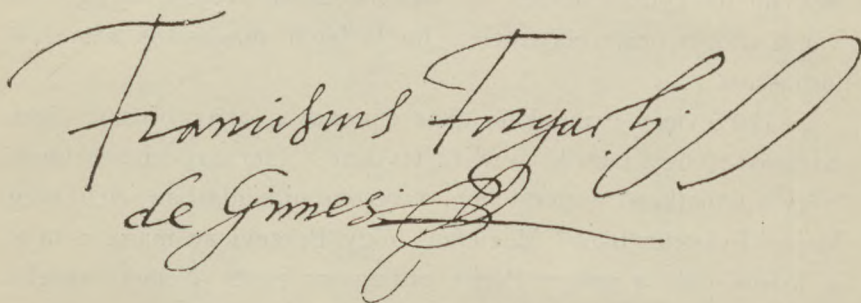 Franciscus Forgach
de Gimes